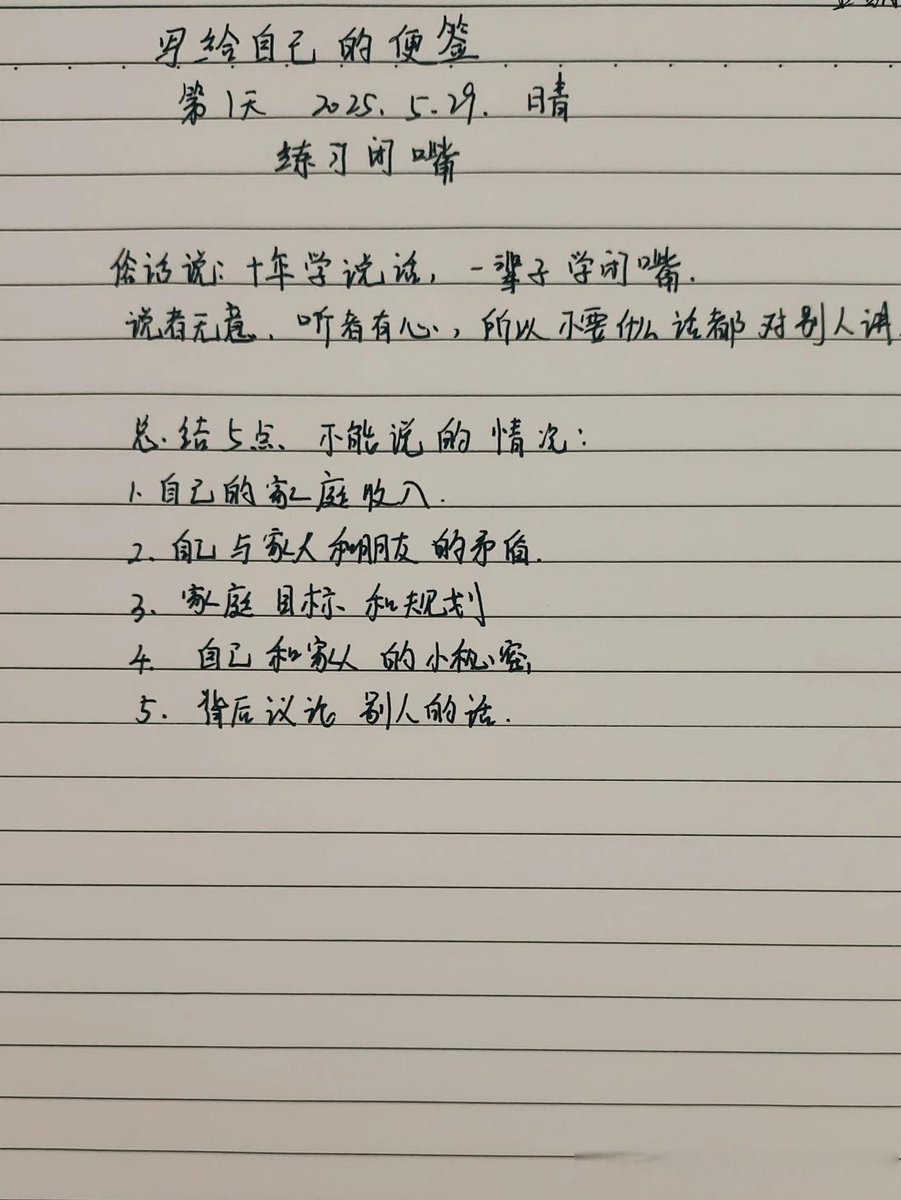 写给自己的便签
第1天 2025.5.29. 晴
练习闭嘴
俗话说:十年学说话,一辈子学闭嘴.
说者无意,听者有心,所以不要什么话都对别人讲.
总结5点、不能说的情况:
1.自己的家庭收入.
2.自己与家人和朋友的矛盾.
3.家庭目标和规划
4.自己和家人的小秘密,
5.背后议论别人的话.